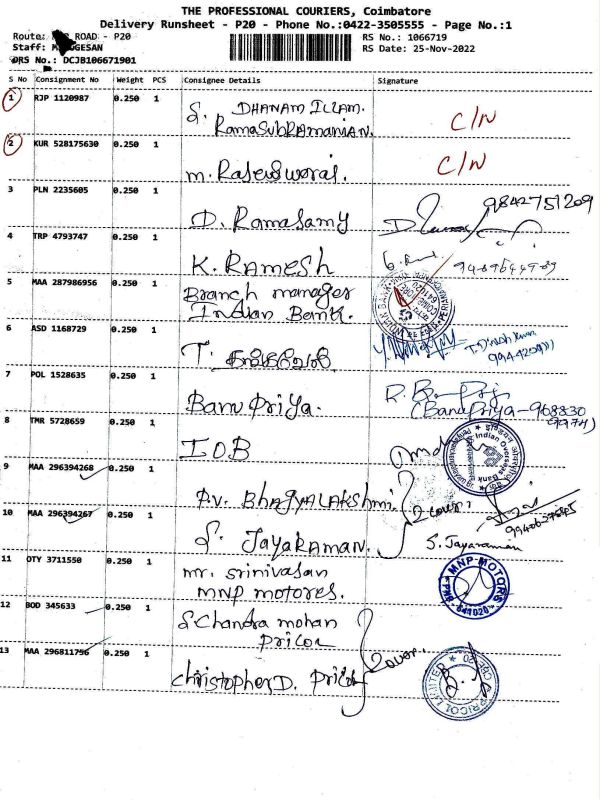 THE PROFESSIONAL COURIERS, Coimbatore
Delivery Runsheet - P20 - Phone No.:0422-3505555 - Page No.:1
Route: ROAD - P20
RS No.: 1066719
Staff:
RS Date: 25-Nov-2022
DRS No.: DCJB106671901
S No Consignment No Weight PCS Consignee Details Signature
1 RJP 1120987 0.250 1
S. DHANAM ILLAM.
RamaSubRamaniAN.
C/N
2 KUR 528175630 0.250 1
m. Rajeswarai.
C/N
3 PLN 2235605 0.250 1
D. Ramasamy
9842751209
4 TRP 4793747 0.250 1
K. RAMESH
5 MAA 287986956 0.250 1
Branch manager
Indian Bank.
6 ASD 1168729 0.250 1
T.
7 POL 1528635 0.250 1
Banu Priya.
(Banu Priya - 968830
8 TMR 5728659 0.250 1
IOB
Indian Overseas Bank
9 MAA 296394268 0.250 1
P.V. BHAGYALAKSHMI
10 MAA 296394267 0.250 1
S. JAYARAMAN.
2 cover.
S. Jayaraman
11 OTY 3711550 0.250 1
mr. srinivasan
MNP motores.
MNP-MOTORS
641020
12 BOD 345633 0.250 1
S Chandra mohan
Pricol
13 MAA 296811796 0.250 1
christopher D. Pricol
2 cover.
PRICOL LIMITED
CBE-20